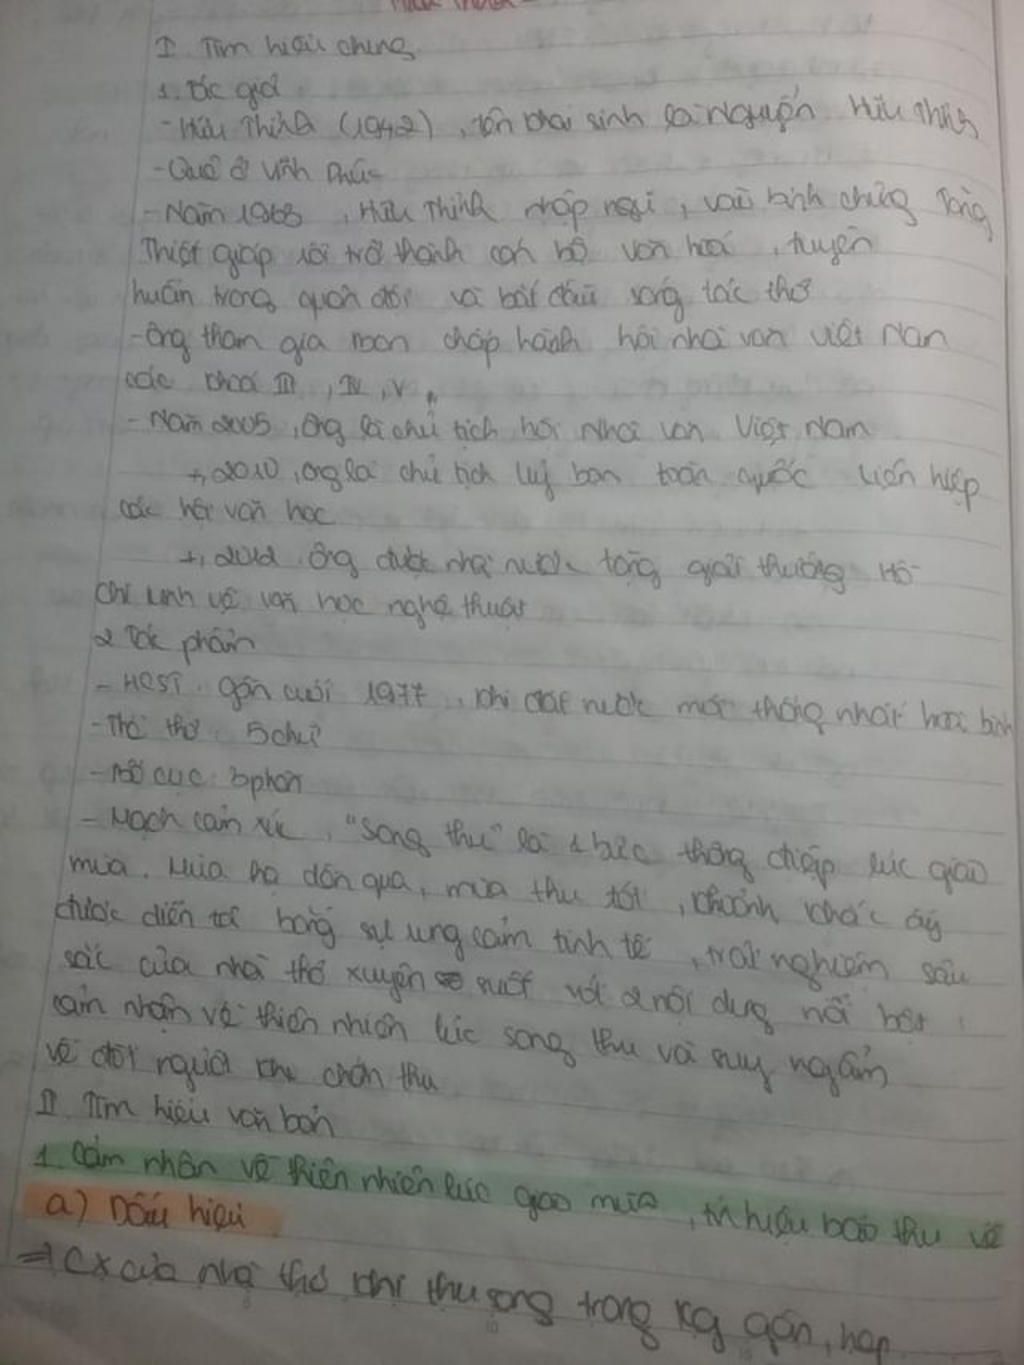 I. Tìm hiểu chung
1. Tác giả
- Hữu Thỉnh (1942), tên khai sinh là Nguyễn Hữu Thỉnh
- Quê ở Vĩnh Phúc
- Năm 1963, Hữu Thỉnh nhập ngũ, vào binh chủng Tăng
Thiết giáp rồi trở thành cán bộ văn hoá, tuyên
huấn trong quân đội và bắt đầu sáng tác thơ
- Ông tham gia ban chấp hành hội nhà văn Việt Nam
các khoá III, IV, V.
- Năm 2005, ông là chủ tịch hội nhà văn Việt Nam
+, 2010, ông là chủ tịch uỷ ban toàn quốc liên hiệp
các hội văn học
+, 2012 ông được nhà nước tặng giải thưởng Hồ
Chí Minh về văn học nghệ thuật
2 Tác phẩm
- HCST: gần cuối 1977, khi đất nước mới thống nhất hoà bình
- Thể thơ: 5 chữ
- Bố cục: 3 phần
- Mạch cảm xúc: "Sang thu" là 1 bức thông điệp lúc giao
mùa. Mùa hạ dần qua, mùa thu tới, khoảnh khắc ấy
được diễn tả bằng sự rung cảm tinh tế, trải nghiệm sâu
sắc của nhà thơ xuyên suốt với 2 nội dung nổi bật:
cảm nhận về thiên nhiên lúc sang thu và suy ngẫm
về đời người khi chớm thu
II. Tìm hiểu văn bản
1. Cảm nhận về thiên nhiên lúc giao mùa, tín hiệu báo thu về
a) Dấu hiệu
=> CX của nhà thơ khi thu sang trong kg gần, hẹp